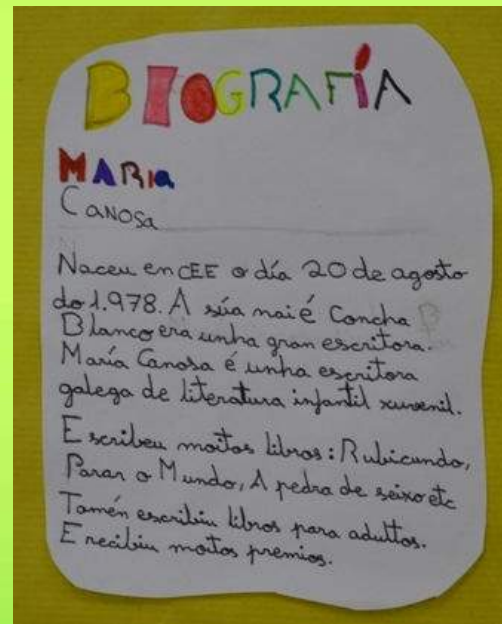 BIOGRAFÍA
MARIA
CANOSA
Naceu en CEE o día 20 de agosto
do 1.978. A súa nai é Concha
Blanco era unha gran escritora.
María Canosa é unha escritora
galega de literatura infantil xuvenil.
Escribeu moitos libros: Rubicundo,
Parar o Mundo, A pedra de seixo etc
Tamén escribiu libros para adultos.
E recibiu moitos premios.